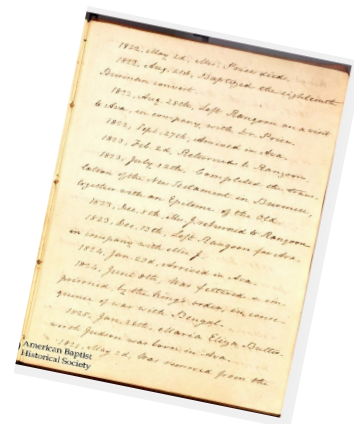 1822. May 2d, Mrs. Price died.
1822. Aug. 21st, Baptized the eighteenth
Burman convert.
1822. Aug. 28th, Left Rangoon on a visit
to Ava, in company with Dr. Price.
1822. Sept. 27th, Arrived in Ava.
1823. Feb. 2d, Returned to Rangoon.
1823. July 12th, Completed the trans-
lation of the New Testament in Burmese,
together with an Epitome of the Old.
1823. Dec. 5th, Mrs J. returned to Rangoon
1823. Dec. 13th, Left Rangoon for Ava,
in company with Mrs J.
1824. Jan. 23d, Arrived in Ava.
1824. June 8th, Was fettered & im-
prisoned, by the King's order, in conse-
quence of war with Bengal.
1825. Jan. 26th, Maria Eliza Butter-
worth Judson was born in Ava.
May 2d, Was removed from the
American Baptist
Historical Society